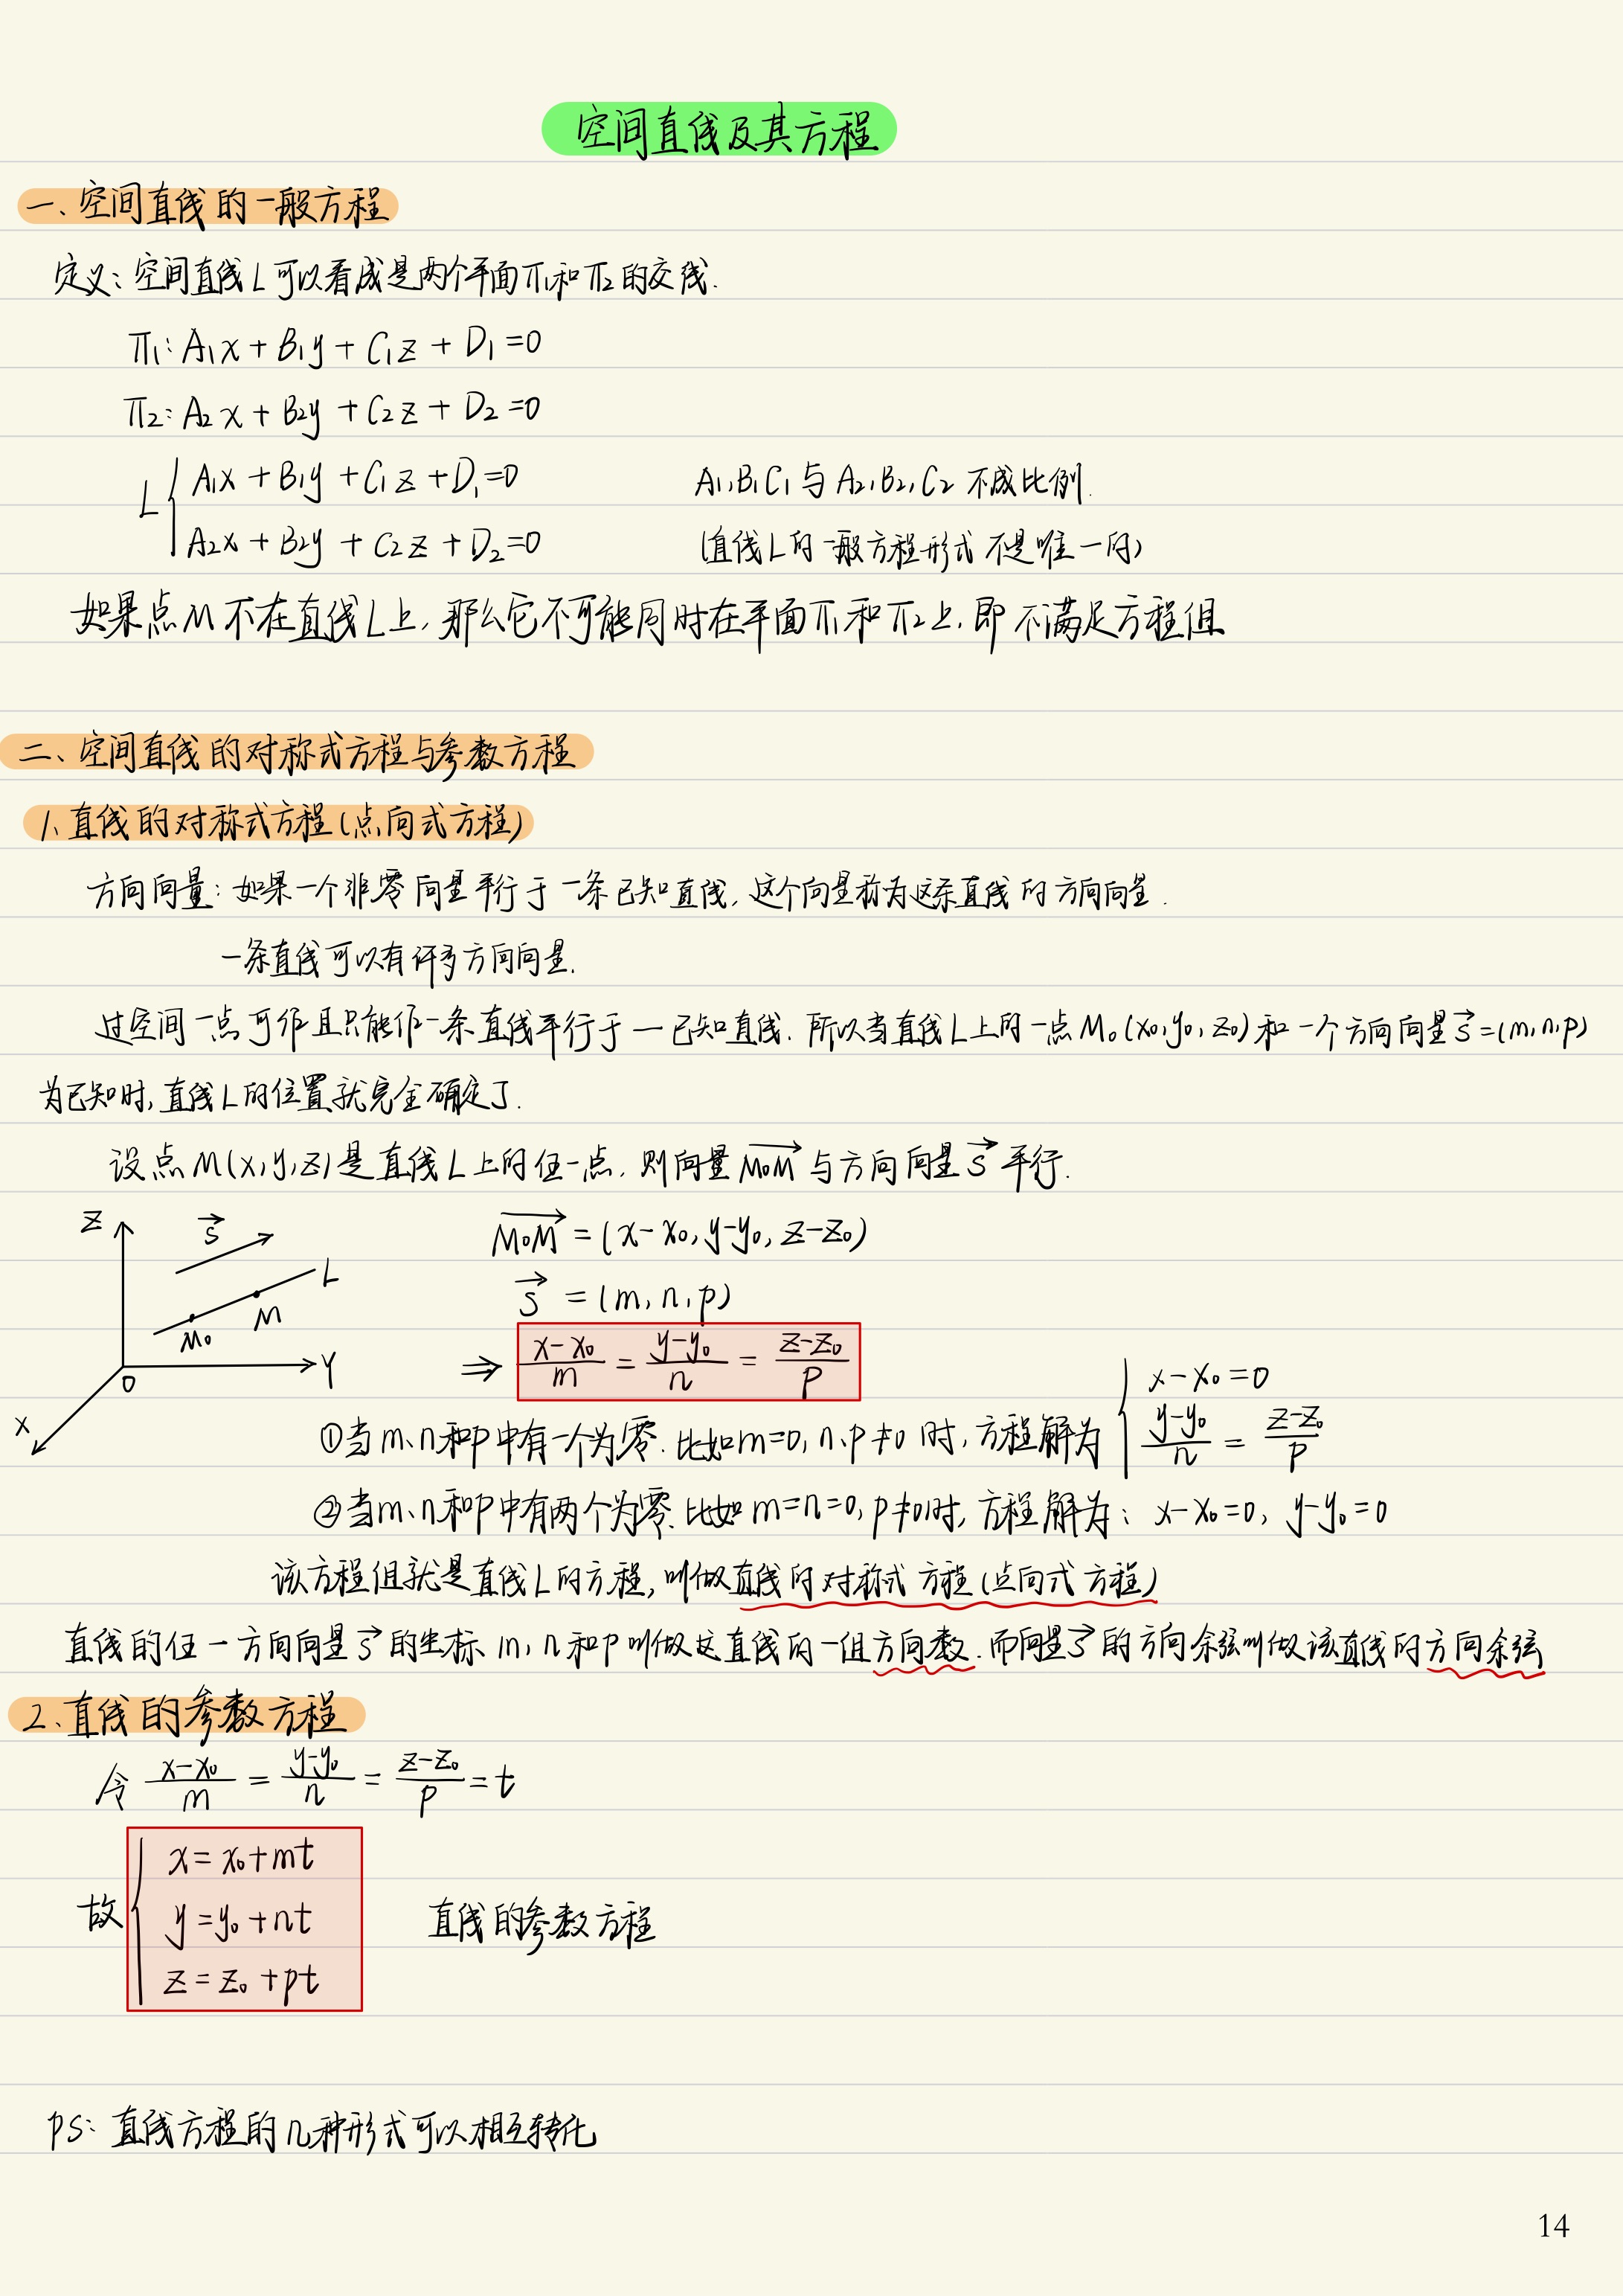 空间直线及其方程
一、空间直线的一般方程
定义：空间直线L可以看成是两个平面π₁和π₂的交线.
π₁: A₁x + B₁y + C₁z + D₁ = 0
π₂: A₂x + B₂y + C₂z + D₂ = 0
L { A₁x + B₁y + C₁z + D₁ = 0    A₁,B₁C₁与A₂,B₂,C₂不成比例.
A₂x + B₂y + C₂z + D₂ = 0    (直线L的一般方程形式不是唯一的)
如果点M不在直线L上，那么它不可能同时在平面π₁和π₂上，即不满足方程组
二、空间直线的对称式方程与参数方程
1、直线的对称式方程(点向式方程)
方向向量：如果一个非零向量平行于一条已知直线，这个向量称为这条直线的方向向量.
一条直线可以有许多方向向量.
过空间一点可作且只能作一条直线平行于一已知直线. 所以当直线L上的一点M₀(x₀,y₀,z₀)和一个方向向量s⃗=(m,n,p)
为已知时，直线L的位置就完全确定了.
设点M(x,y,z)是直线L上的任一点，则向量M₀M⃗与方向向量s⃗平行.
Z
s⃗
L
M
M₀
O
Y
X
M₀M⃗ = (x-x₀, y-y₀, z-z₀)
s⃗ = (m, n, p)
⇒ (x-x₀)/m = (y-y₀)/n = (z-z₀)/p
①当m、n和p中有一个为零. 比如m=0, n、p≠0时，方程解为 { x-x₀=0
(y-y₀)/n = (z-z₀)/p
②当m、n和p中有两个为零. 比如m=n=0, p≠0时，方程解为：x-x₀=0, y-y₀=0
该方程组就是直线L的方程，叫做直线的对称式方程(点向式方程)
直线的任一方向向量s⃗的坐标m, n和p叫做这直线的一组方向数. 而向量s⃗的方向余弦叫做该直线的方向余弦
2、直线的参数方程
令 (x-x₀)/m = (y-y₀)/n = (z-z₀)/p = t
故 { x = x₀+mt
y = y₀+nt    直线的参数方程
z = z₀+pt
PS：直线方程的几种形式可以相互转化
14